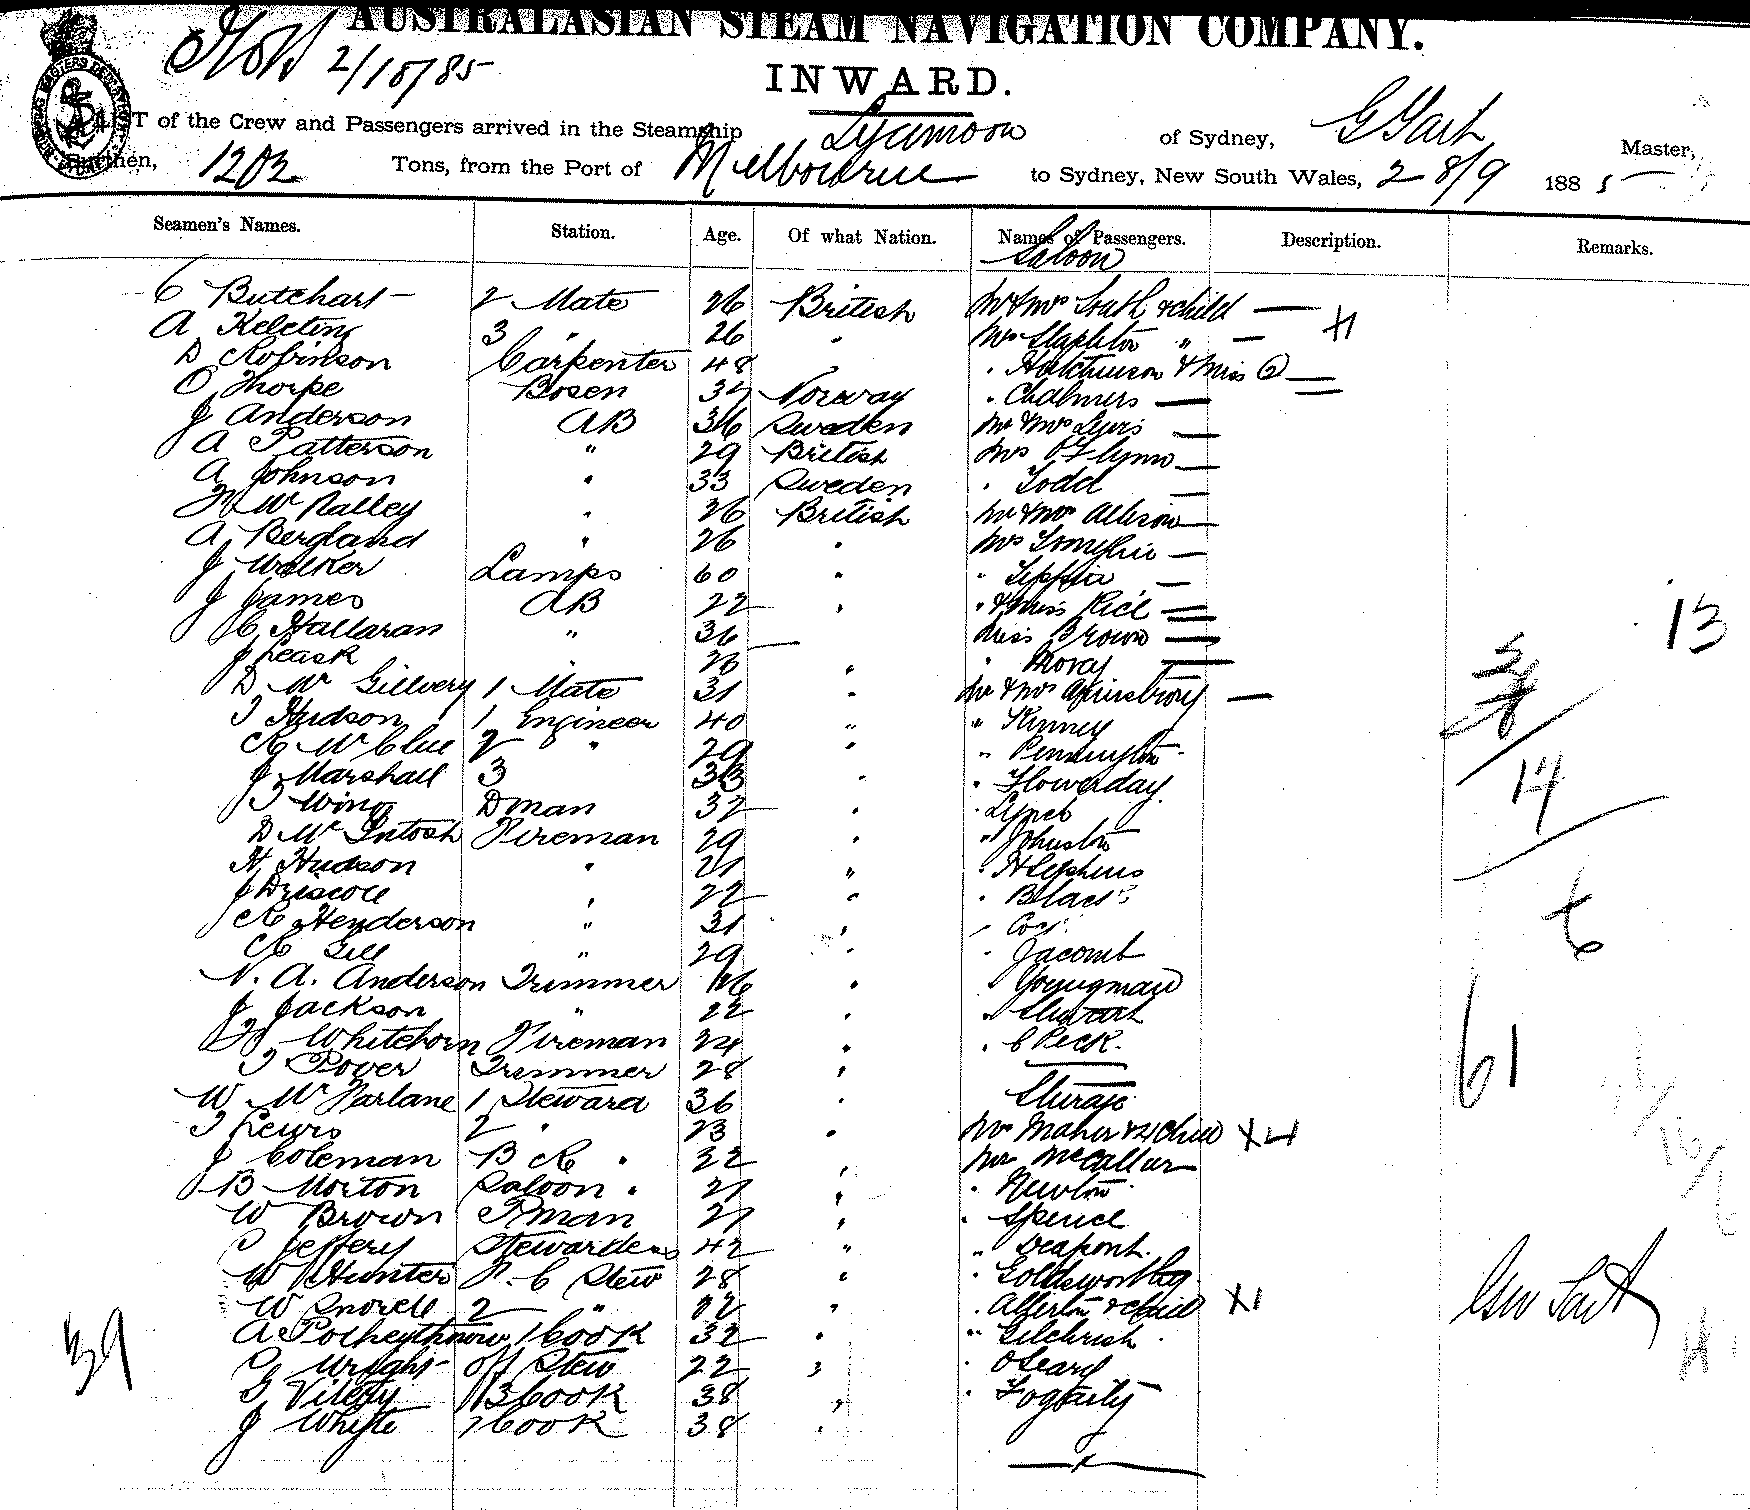 AUSTRALASIAN STEAM NAVIGATION COMPANY.
2/10/85
INWARD.
LIST of the Crew and Passengers arrived in the Steamship Lyeemoon of Sydney, Master,
Burthen, 1202 Tons, from the Port of Melbourne to Sydney, New South Wales, 28/9 1885
Seamen's Names. Station. Age. Of what Nation. Names of Passengers. Description. Remarks.
Saloon
C Butchart 2 Mate 26 British Mr & Mrs South & child —
A Keleting 3 " 26 " Mrs Stapleton " —
D Robinson Carpenter 48 " Hutchinson & Miss —
O Thorpe Bosen 32 Norway " Chalmers —
J Anderson AB 36 Sweden Mr & Mrs —
A Patterson " 29 British Mrs O'Flynn —
A Johnson " 33 Sweden " Todd —
Nalley " 26 British Mr & Mrs Allison —
A Bergland " 26 " Mrs —
J Walker Lamps 60 " —
J James AB 22 " " & Miss Rice —
C Hallaran " 36 — Miss Brown —
J Leask " 26 " " —
D Mc Gillvery 1 Mate 31 " Mr & Mrs Armstrong —
T Hudson 1 Engineer 40 " " Kinney
R McClue 2 " 29 " " Pennington
J Marshall 3 33 " " Flowerday
T Wing Dman 32 " " Lynch
D McIntosh Fireman 29 " " Johnston
H Hudson " 21 " " Stephens
J Driscoll " 22 " " Black
R Henderson " 31 " "
R Gill " 29 " " Jacomb
N. A. Anderson Trimmer " " Youngman
J Jackson " 22 " " Stewart
Whitehorn Fireman 24 " " C Peck.
T Power Trimmer 28 "
W McFarlane 1 Steward 36 " Steerage
T Lewis 2 " 23 " Mrs Maher & 4 child X4
J Coleman B R " 22 " Mr McCallum
B Morton Saloon " 21 " " Newton
W Brown Pman 21 " " Spence
Jeffery Stewardess 42 " "
W Hunter F. C Stew 28 " " Goldsworthy
W 2 " " " & child X1
A 1 Cook 32 " " Gilchrist
Wright off Stew 22 " " O'Leary
B Cook 38 " " Fogarty
J Whyte Cook 38 "
13
14
6
61
39